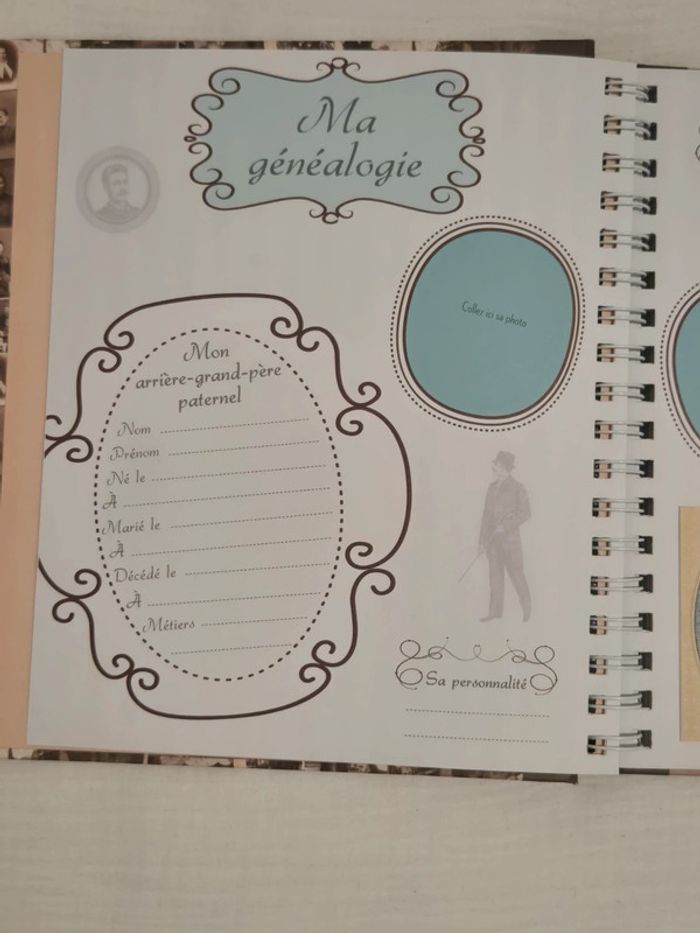 Ma
généalogie
Collez ici sa photo
Mon
arrière-grand-père
paternel
Nom
Prénom
Né le
À
Marié le
À
Décédé le
À
Métiers
Sa personnalité